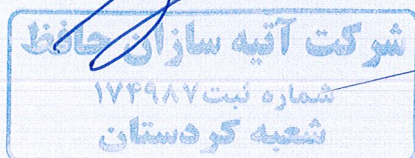 شرکت آتیه سازان حافظ
شماره ثبت ۱۷۴۹۸۷
شعبه کردستان